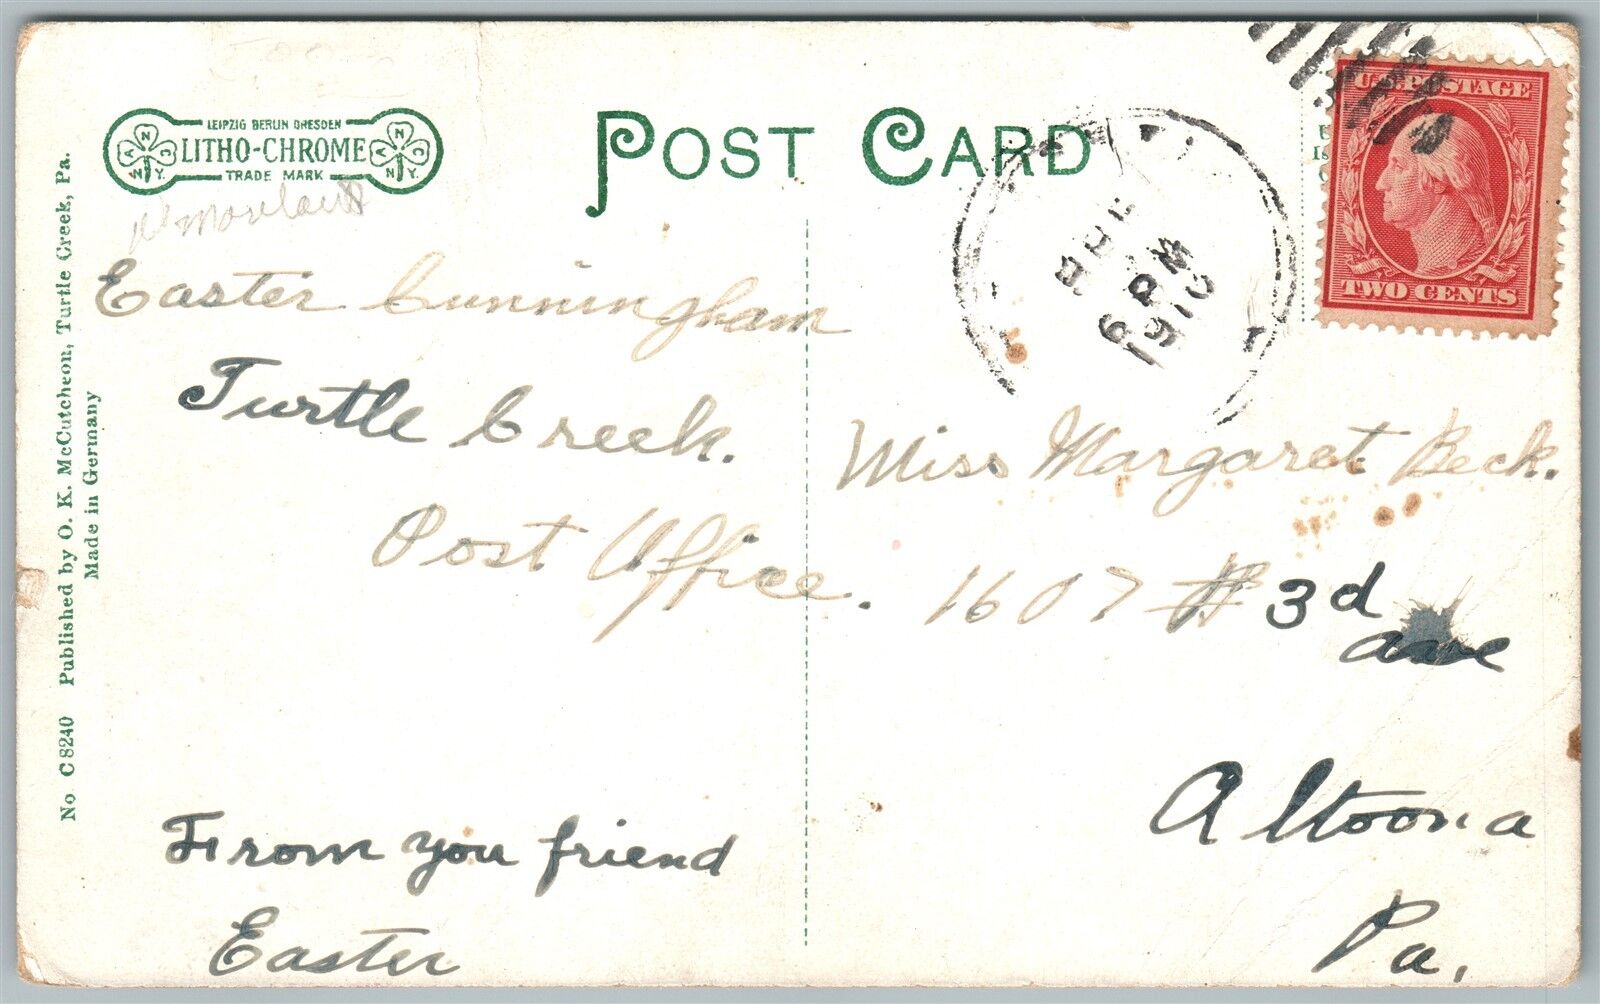 LEIPZIG BERLIN DRESDEN
LITHO-CHROME
TRADE MARK
POST CARD
U.S. POSTAGE
TWO CENTS
No C8240 Published by O. K. McCutcheon, Turtle Creek, Pa.
Made in Germany
Easter Cunningham
Turtle Creek.
Post Office.
From you friend
Easter
Miss Margaret Beck.
1607 3d
ave
Altoona
Pa.